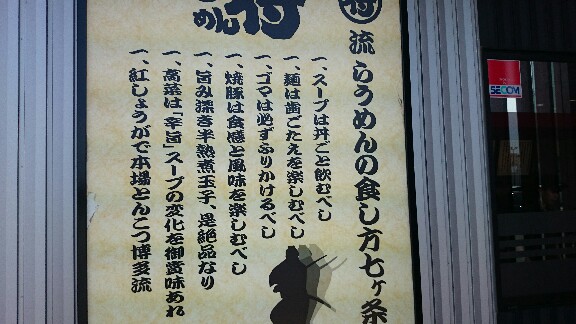 侍
流 らうめんの食し方七ヶ条
一、スープは丼ごと飲むべし
一、麺は歯ごたえを楽しむべし
一、ゴマは必ずふりかけるべし
一、焼豚は食感と風味を楽しむべし
一、旨み深き半熟煮玉子、是絶品なり
一、高菜は「辛旨」スープの変化を御賞味あれ
一、紅しょうがで本場とんこつ博多流
めん
侍
SECOM